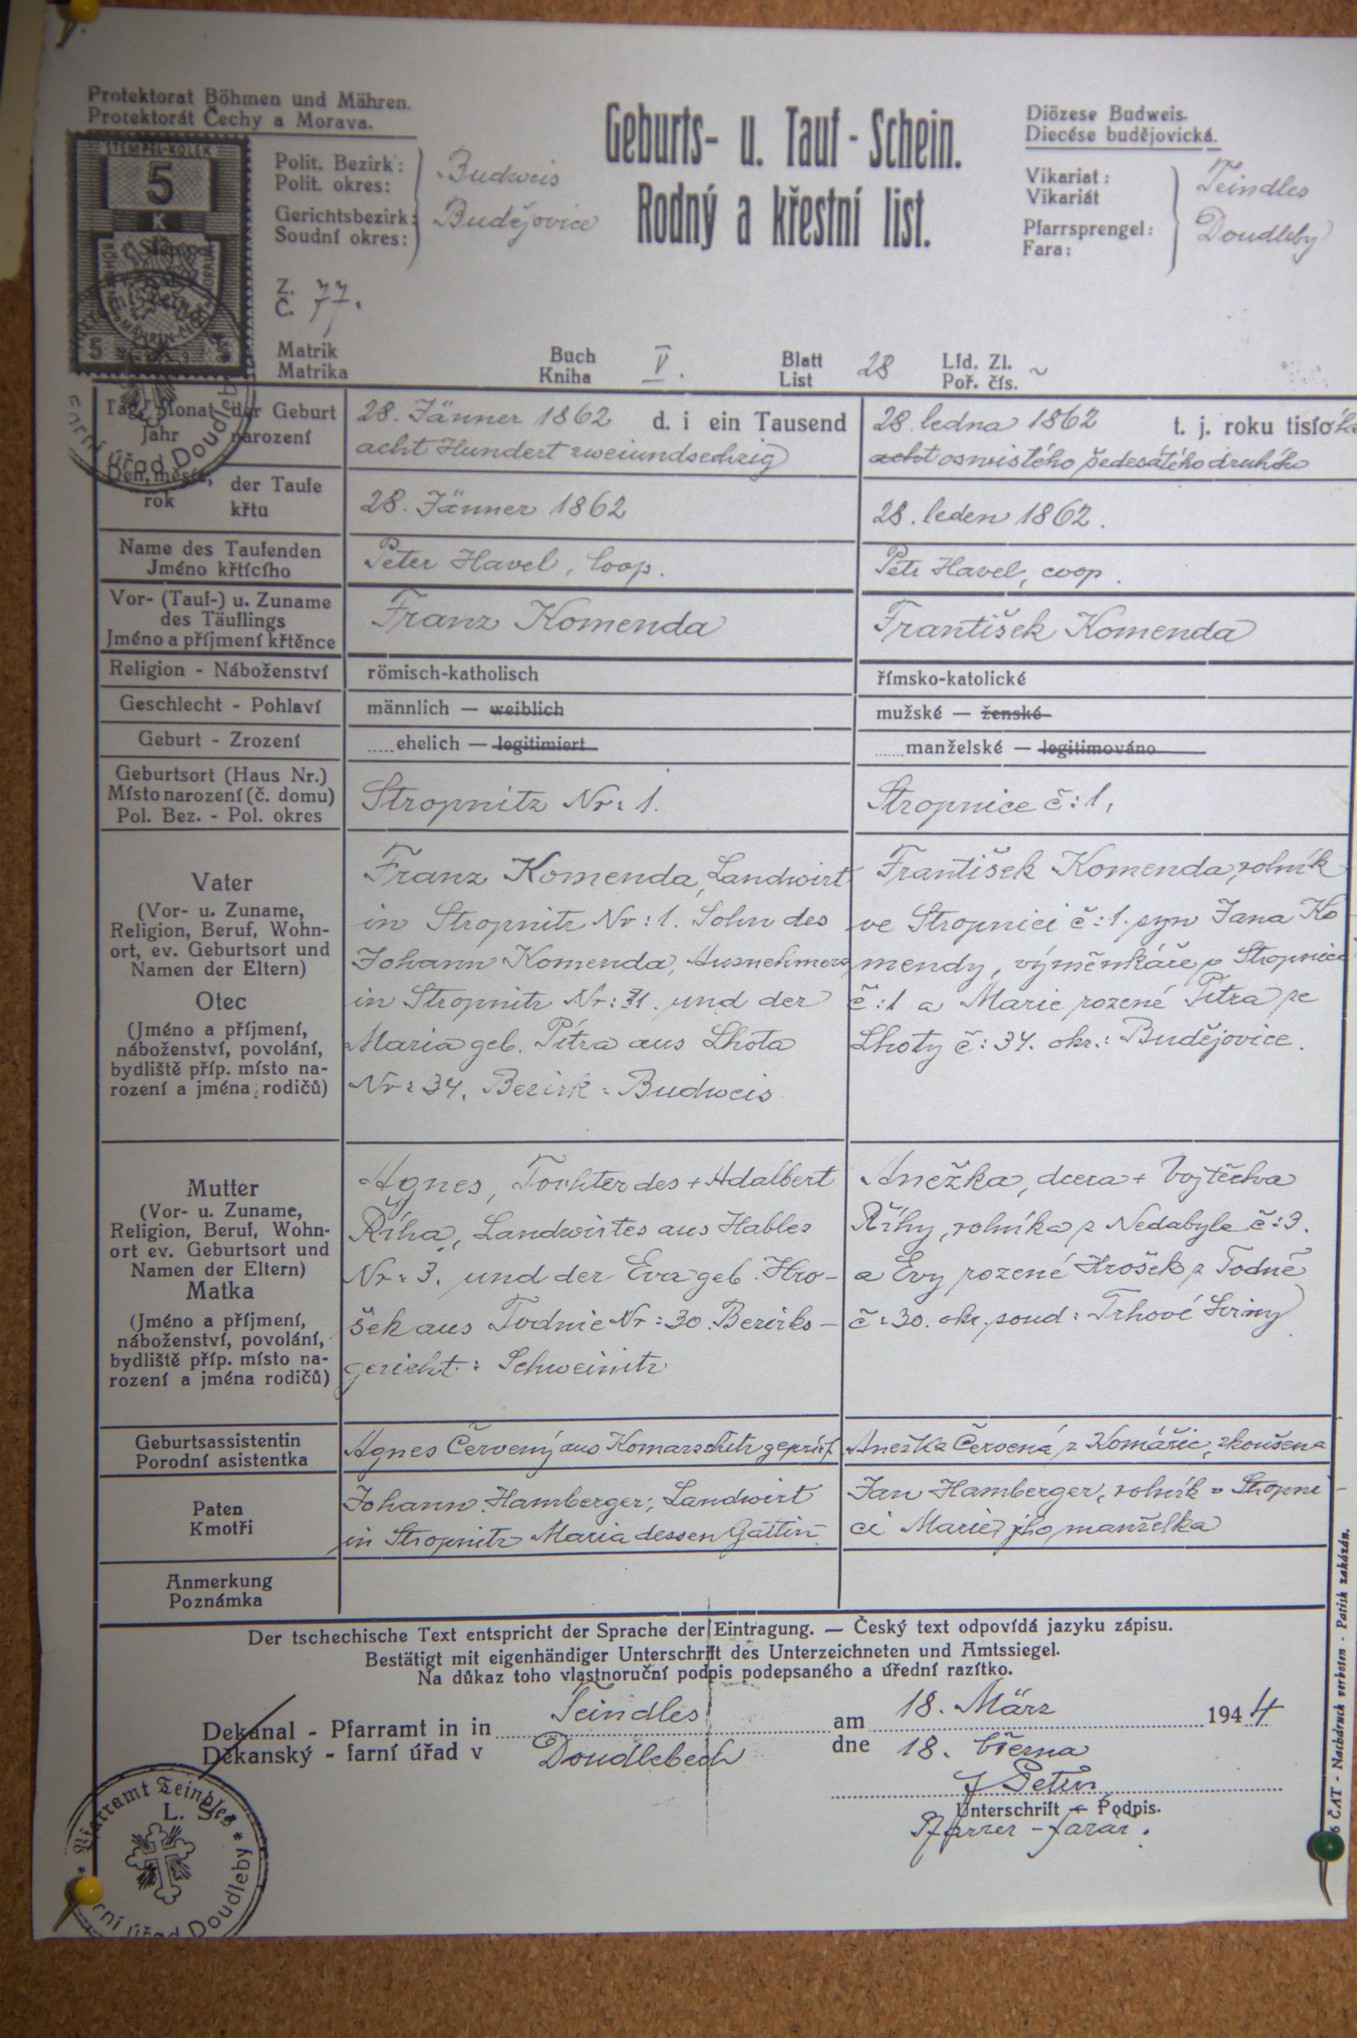 Protektorat Böhmen und Mähren.
Protektorát Čechy a Morava.
STEMPEL-KOLEK
5
K
Polit. Bezirk:
Polit. okres:
Budweis
Gerichtsbezirk:
Soudní okres:
Budějovice
Geburts- u. Tauf-Schein.
Rodný a křestní list.
Diözese Budweis.
Diecése budějovická.
Vikariat:
Vikariát
Teindles
Pfarrsprengel:
Fara:
Doudleby
Z.
Č. 77.
Matrik
Matrika
Buch
Kniha V.
Blatt
List 28
Lfd. Zl.
Poř. čís. ~
Tag, Monat der Geburt
Jahr narození
Den, měsíc, der Taufe
rok křtu
28. Jänner 1862 d. i ein Tausend
acht Hundert zweiundsechzig
28. ledna 1862 t. j. roku tisíc
acht osmistého šedesátého druhého
28. Jänner 1862
28. leden 1862.
Name des Taufenden
Jméno křtícího
Peter Havel, Coop.
Petr Havel, coop.
Vor- (Tauf-) u. Zuname
des Täuflings
Jméno a příjmení křtěnce
Franz Komenda
František Komenda
Religion - Náboženství
römisch-katholisch
římsko-katolické
Geschlecht - Pohlaví
männlich — weiblich
mužské — ženské
Geburt - Zrození
.....ehelich — legitimiert
......manželské — legitimováno
Geburtsort (Haus Nr.)
Místo narození (č. domu)
Pol. Bez. - Pol. okres
Stropnitz Nr: 1.
Stropnice č: 1,
Vater
(Vor- u. Zuname,
Religion, Beruf, Wohn-
ort, ev. Geburtsort und
Namen der Eltern)
Otec
(Jméno a příjmení,
náboženství, povolání,
bydliště příp. místo na-
rození a jména rodičů)
Franz Komenda, Landwirt
in Stropnitz Nr: 1. Sohn des
Johann Komenda, Ausnehmers
in Stropnitz Nr: 1. und der
Maria geb. Pitra aus Lhota
Nr: 34, Bezirk: Budweis
František Komenda, rolník
ve Stropnici č: 1. syn Jana Ko
mendy, výměnkáře z Stropnice
č: 1 a Marie rozené Pitra ze
Lhoty č: 34. okr.: Budějovice.
Mutter
(Vor- u. Zuname,
Religion, Beruf, Wohn-
ort ev. Geburtsort und
Namen der Eltern)
Matka
(Jméno a příjmení,
náboženství, povolání,
bydliště příp. místo na-
rození a jména rodičů)
Agnes, Tochter des + Adalbert
Říha, Landwirtes aus Hables
Nr: 3. und der Eva geb. Hro-
šek aus Todnie Nr: 30. Bezirks-
gericht: Schweinitz
Anežka, dcera + Vojtěcha
Říhy, rolníka z Nedabyle č: 3.
a Evy rozené Hrošek z Todně
č: 30. okr. soud: Trhové Sviny
Geburtsassistentin
Porodní asistentka
Agnes Červený aus Komarschitz geprüf.
Anežka Červená z Komářic, zkoušena
Paten
Kmotři
Johann Hamberger, Landwirt
in Stropnitz Maria dessen Gattin
Jan Hamberger, rolník v Stropni-
ci Marie, jeho manželka
Anmerkung
Poznámka
Der tschechische Text entspricht der Sprache der Eintragung. — Český text odpovídá jazyku zápisu.
Bestätigt mit eigenhändiger Unterschrift des Unterzeichneten und Amtssiegel.
Na důkaz toho vlastnoruční podpis podepsaného a úřední razítko.
Dekanal - Pfarramt in in Teindles am 18. März 1944
Děkanský - farní úřad v Doudlebech dne 18. března
Unterschrift — Podpis.
Pfarrer - farář.
Pfarramt Teindles
L. S.
Farní úřad Doudleby
ČAT - Nachdruck verboten - Patisk zakázán.